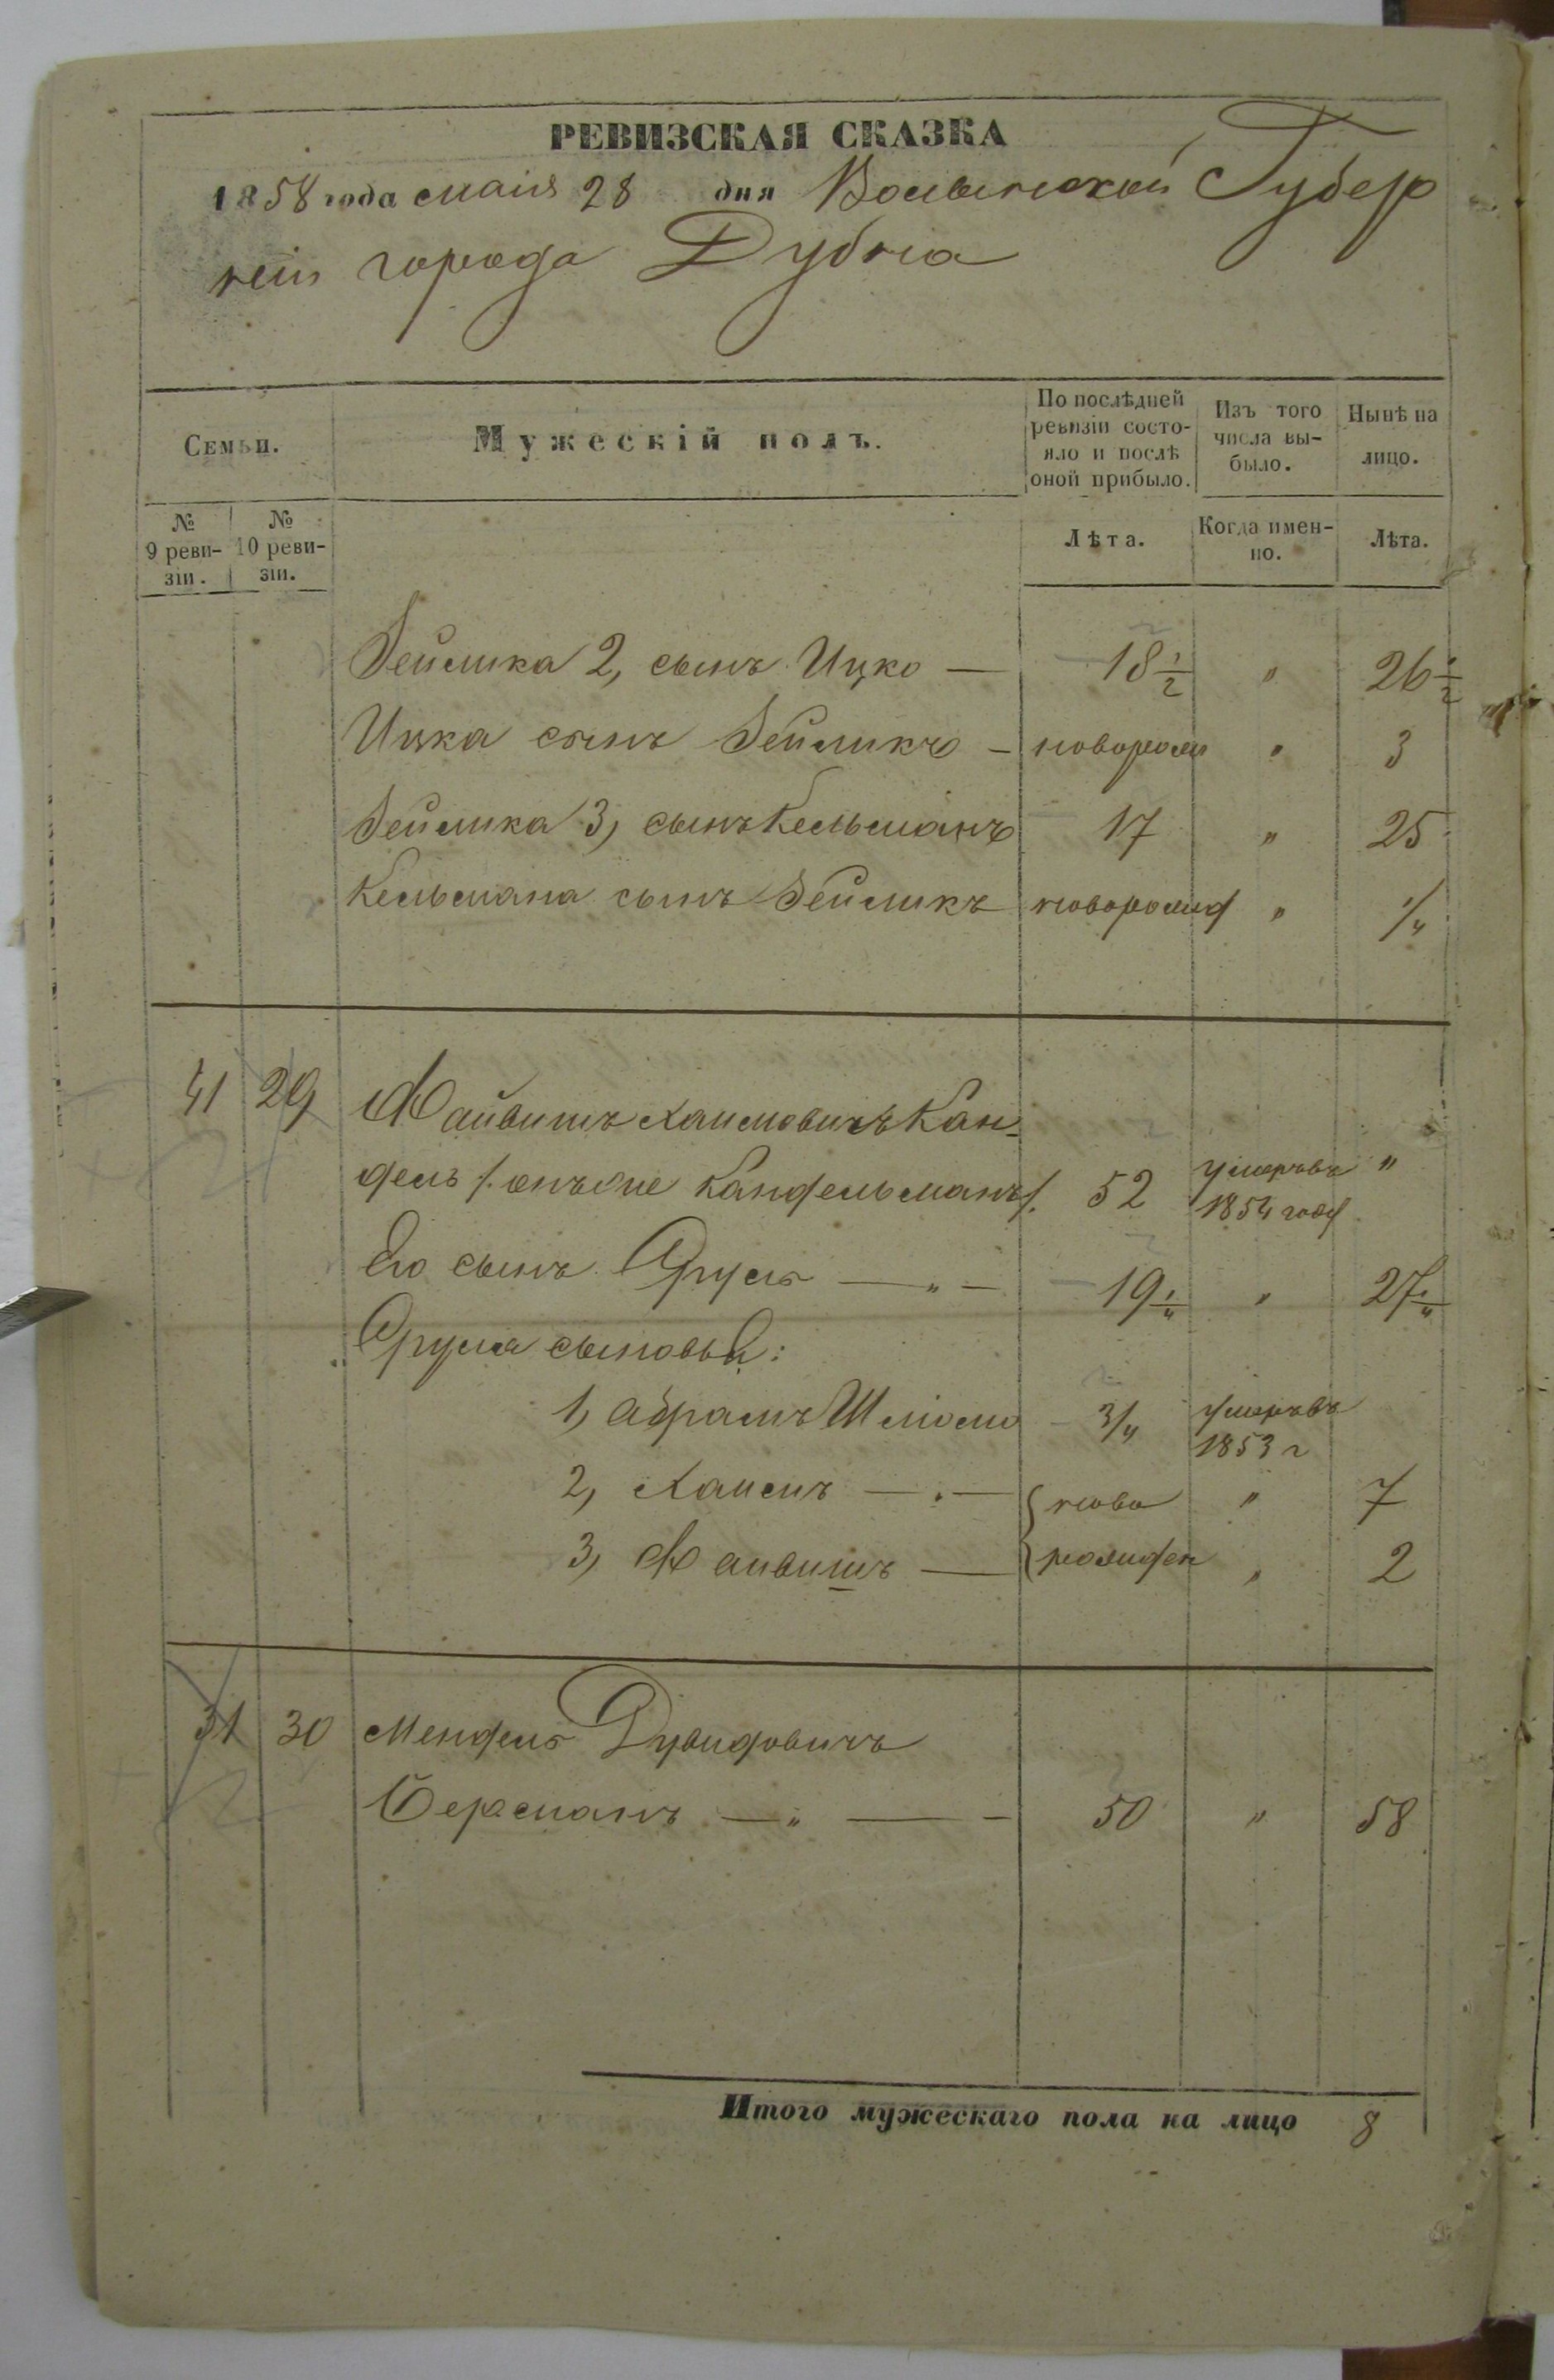 РЕВИЗСКАЯ СКАЗКА
1858 года маія 28 дня Волынской Губер
ніи города Дубна
Семьи.
Мужескій полъ.
По послѣдней ревизіи состо-
яло и послѣ
оной прибыло.
Изъ того
числа вы-
было.
Нынѣ на
лицо.
№
9 реви-
зіи.
№
10 реви-
зіи.
Лѣта.
Когда имен-
но.
Лѣта.
Зейлика 2, сынъ Ицко — 18 1/2 " 26 1/2
Ицка сынъ Зейликъ — новорож " 3
Зейлика 3, сынъ Кельманъ 17 " 25
Кельмана сынъ Зейликъ новорожд " 1/4
41 29 Файвишъ Хаимовичъ Кан-
дель /. онъ же Кандельманъ /. 52 умеръ въ "
1854 году
Его сынъ Сруль — " — 19 1/4 " 27 1/4
Сруля сыновья:
1, Абрамъ Шліома 3/4 умеръ въ
1853 г
2, Хаимъ — " — ново " 7
3, Файвишъ — рожден " 2
31 30 Мендель Дувидовичъ
Берманъ — " — 50 " 58
Итого мужескаго пола на лицо 8